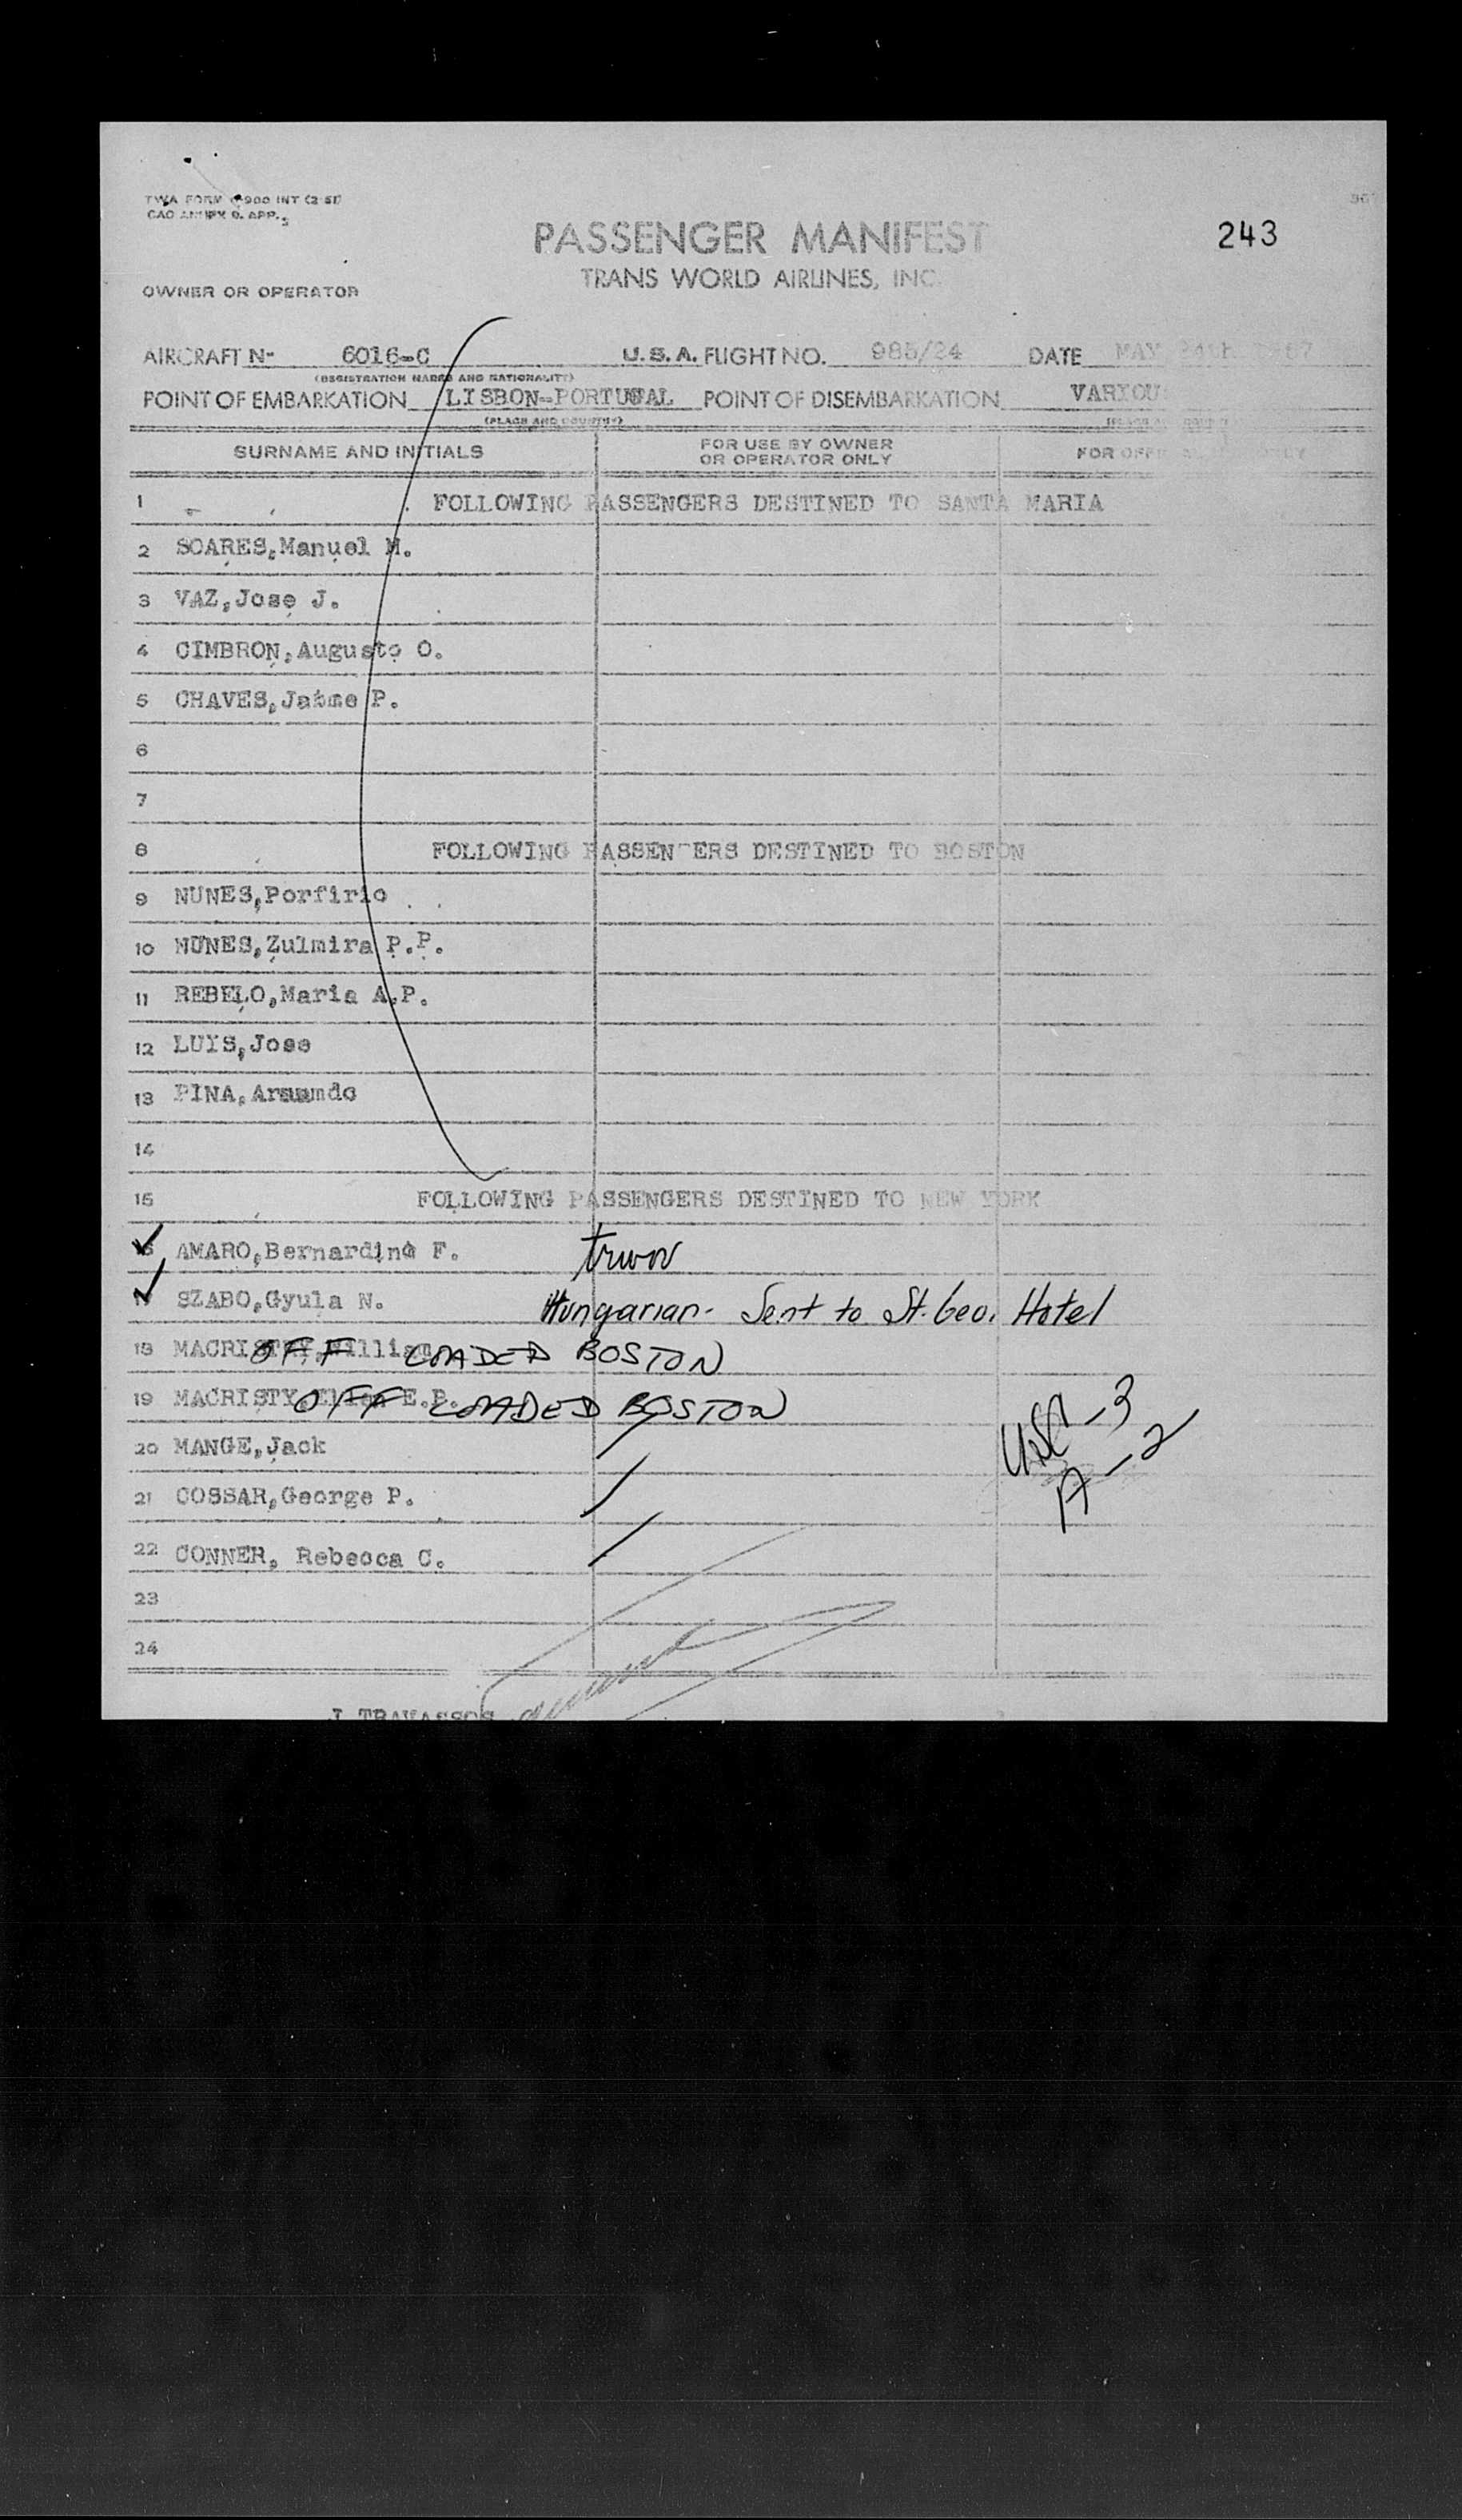 TWA FORM 900 INT (2-51)
CAO ANNEX 9. APP. 3
PASSENGER MANIFEST
243
TRANS WORLD AIRLINES, INC.
OWNER OR OPERATOR
AIRCRAFT N- 6016-C U.S.A. FLIGHT NO. 985/24 DATE MAY 24th
(REGISTRATION MARKS AND NATIONALITY)
POINT OF EMBARKATION LISBON-PORTUGAL POINT OF DISEMBARKATION VARIOU
(PLACE AND COUNTRY)
SURNAME AND INITIALS FOR USE BY OWNER OR OPERATOR ONLY FOR ONLY
1 FOLLOWING PASSENGERS DESTINED TO SANTA MARIA
2 SOARES,Manuel M.
3 VAZ,Jose J.
4 CIMBRON,Augusto O.
5 CHAVES,Jaime P.
6
7
8 FOLLOWING PASSEN ERS DESTINED TO BOSTON
9 NUNES,Porfirio
10 NUNES,Zulmira P.P.
11 REBELO,Maria A.P.
12 LUIS,Jose
13 PINA,Armando
14
15 FOLLOWING PASSENGERS DESTINED TO NEW YORK
16 AMARO,Bernardino F. trwov
17 SZABO,Gyula N. Hungarian- Sent to St. Geo. Hotel
18 MACRISTY,William OFF LOADED BOSTON
19 MACRISTY E.P. OFF LOADED BOSTON
20 MANGE,Jack
USC - 3
21 COSSAR,George P.
A - 2
22 CONNER, Rebecca C.
23
24
J TRAVASSOS